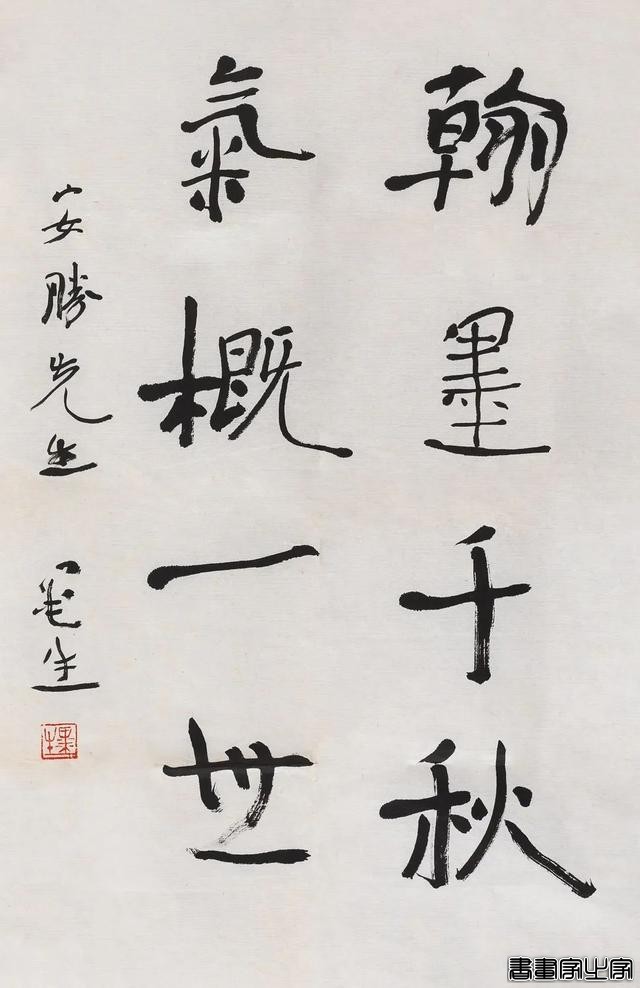 翰墨千秋
氣概一世
安勝先生
書畫家之家